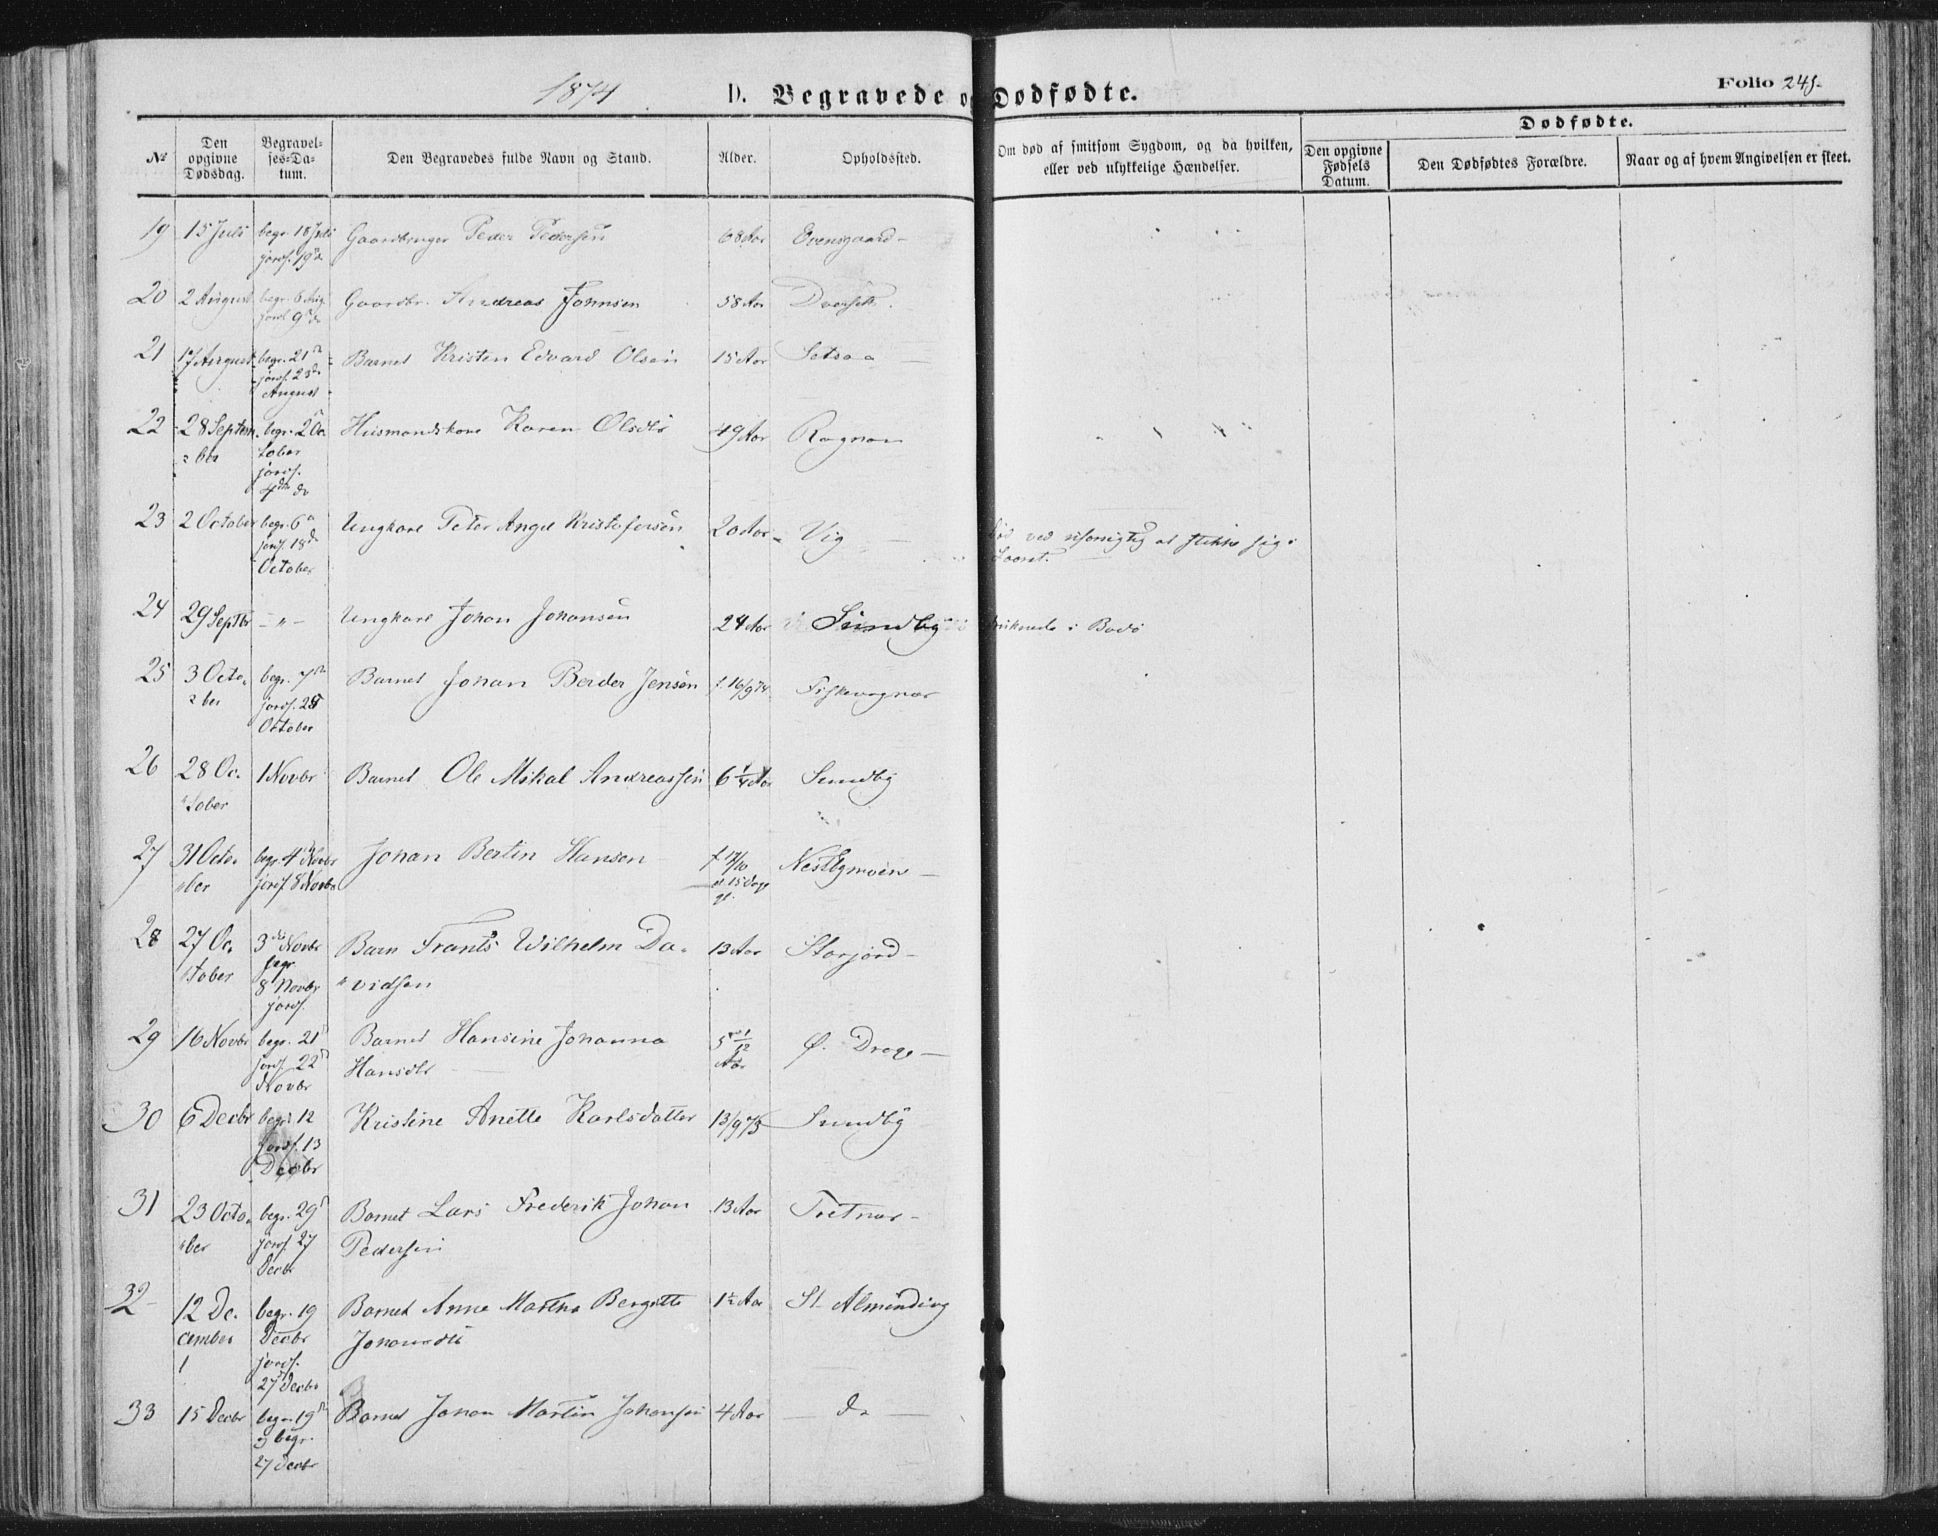 1874 D. Begravede og Dødfødte. Folio 245.
№
Den opgivne Dødsdag.
Begravelses=Datum.
Den Begravedes fulde Navn og Stand.
Alder.
Opholdssted.
Om død af smitsom Sygdom, og da hvilken, eller ved ulykkelige Hændelser.
Dødfødte.
Den opgivne Fødsels Datum.
Den Dødfødtes Forældre.
Naar og af hvem Angivelsen er skeet.
19 15 Juli begr. 18 Juli Gaardbruger Peder Pedersen 68 Aar Evensgaard
jordf. 19 d.
20 2 August begr. 8 Aug. Gaardbr. Andreas Johnsen 58 Aar
jordf. 9 do
21 17 August begr. 21 Barnet Kristen Edvard Olsen 15 Aar Setsaa
jordf. 23
August
22 28 Septem begr. 2 Oc Husmandskone Karen Olsdtr 49 Aar Rognan
ber tober
jordf.
4de do
23 2 October begr. 6 Ungkarl Peter Angel Kristofersen 20 Aar Vig død ved uforsigtig at stikke sig i
jordf. 18 Laaret.
October
24 29 Septbr - " - Ungkarl Johan Johansen 24 Aar Sundby druknede i Bodø
25 3 Octo begr. 7 Barnet Johan Berder Jensen f. 16/9 74 Fiskevognar
ber jordf. 25
October
26 28 Oc 1 Novbr Barnet Ole Mikal Andreassen 6 1/4 Aar Sundby
tober
27 31 Octo begr. 4 Novbr Johan Bertin Hansen f. 17/10 Nestbymoen
ber jordf. 8 Novbr 15 Dage
gl.
28 27 Oc 3 Novbr Barn Frants Wilhelm Da 13 Aar Storjord
tober begr vidsen
8 Novbr
jordf.
29 16 Novbr begr. 21 Barnet Hansine Johanna 5 1/12 Ø. Drage
jordf. 22 Hansdtr Aar
Novbr
30 6 Decbr begr. 12 Kristine Anette Karlsdatter 13/9 73 Sundby
jordf. 13
Decbr
31 23 Octo begr. 29 Barnet Lars Frederik Johan 13 Aar Tretnar
ber jordf. 27 Pedersen
Decbr
32 12 De begr. 19 Barnet Anne Martha Bergitte 1 1/2 Aar St. Almending
cember Decbr
jordf.
27 Decbr
33 15 Decbr begr. 19 Barnet Johan Martin Johansen 4 Aar do
begr.
27 Decbr